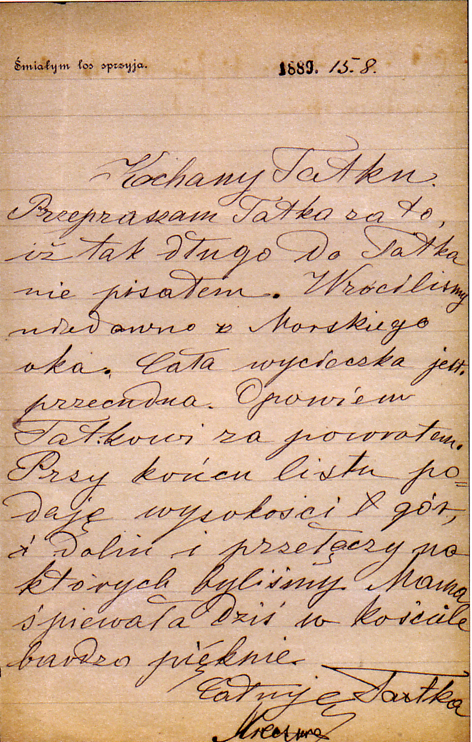 Śmiałym los sprzyja.
1889. 15.8.
Kochany Tatku.
Przepraszam Tatka za to,
iż tak długo do Tatka
nie pisałem. Wróciliśmy
niedawno z Morskiego
oka. Cała wycieczka jest
przecudna. Opowiem
Tatkowi za powrotem.
Przy końcu listu po=
daję wysokości gór,
i dolin i przełęczy na
których byliśmy. Mama
śpiewała dziś w kościele
bardzo pięknie.
Całuję Tatka